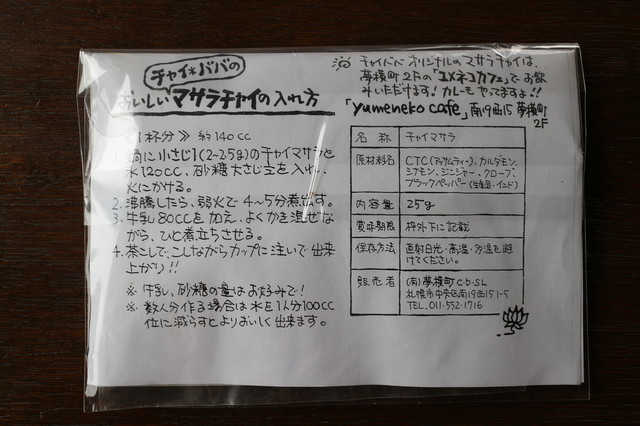 チャイ*ババの
おいしいマサラチャイの入れ方
1杯分》 約140cc
1. 鍋に小さじ1(2~2.5g)のチャイマサラと
水120cc、砂糖大さじ1/2を入れ、
火にかける。
2. 沸騰したら、弱火で4~5分煮出す。
3. 牛乳80ccを加え、よくかき混ぜな
がら、ひと煮立ちさせる。
4. 茶こしで、こしながらカップに注いで出来
上がり!!
※ 牛乳、砂糖の量はお好みで!
※ 数人分作る場合は水を1人分100cc
位に減らすとよりおいしく出来ます。
チャイババオリジナルのマサラチャイは、
夢横町2Fの「ユメネコカフェ」でお飲
みいただけます!カレーもやってますよ!!
「yumeneko cafe」南19西15 夢横町
2F
名称 チャイマサラ
原材料名 CTC(アッサムティー)、カルダモン、
シナモン、ジンジャー、クローブ、
ブラックペッパー(生産国・インド)
内容量 25g
賞味期限 枠外下に記載
保存方法 直射日光・高温・多湿を避
けてください。
販売者 (有)夢横町 c.b.SL
札幌市中央区南19西15 1-5
TEL.011-552-1716